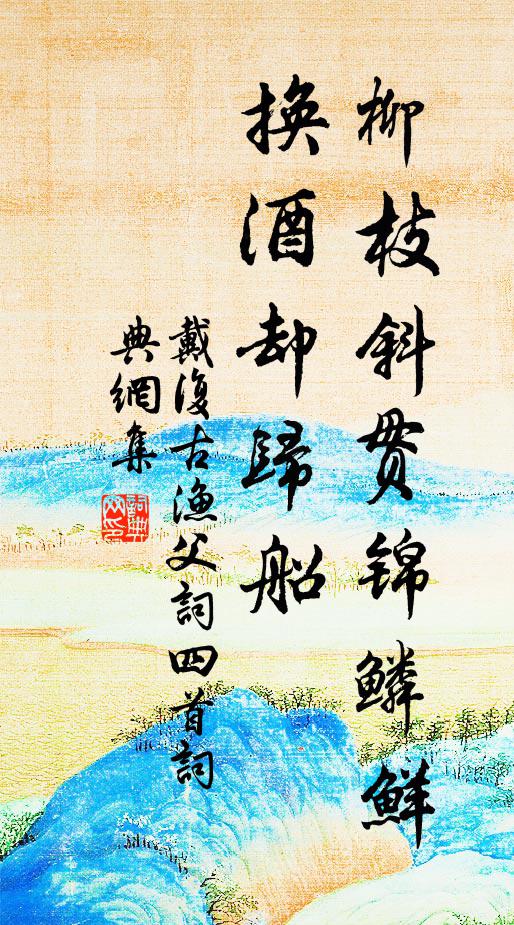 柳枝斜贯锦鳞鲜
换酒却歸船
戴復古漁父詞四首詞
典網集
詞典